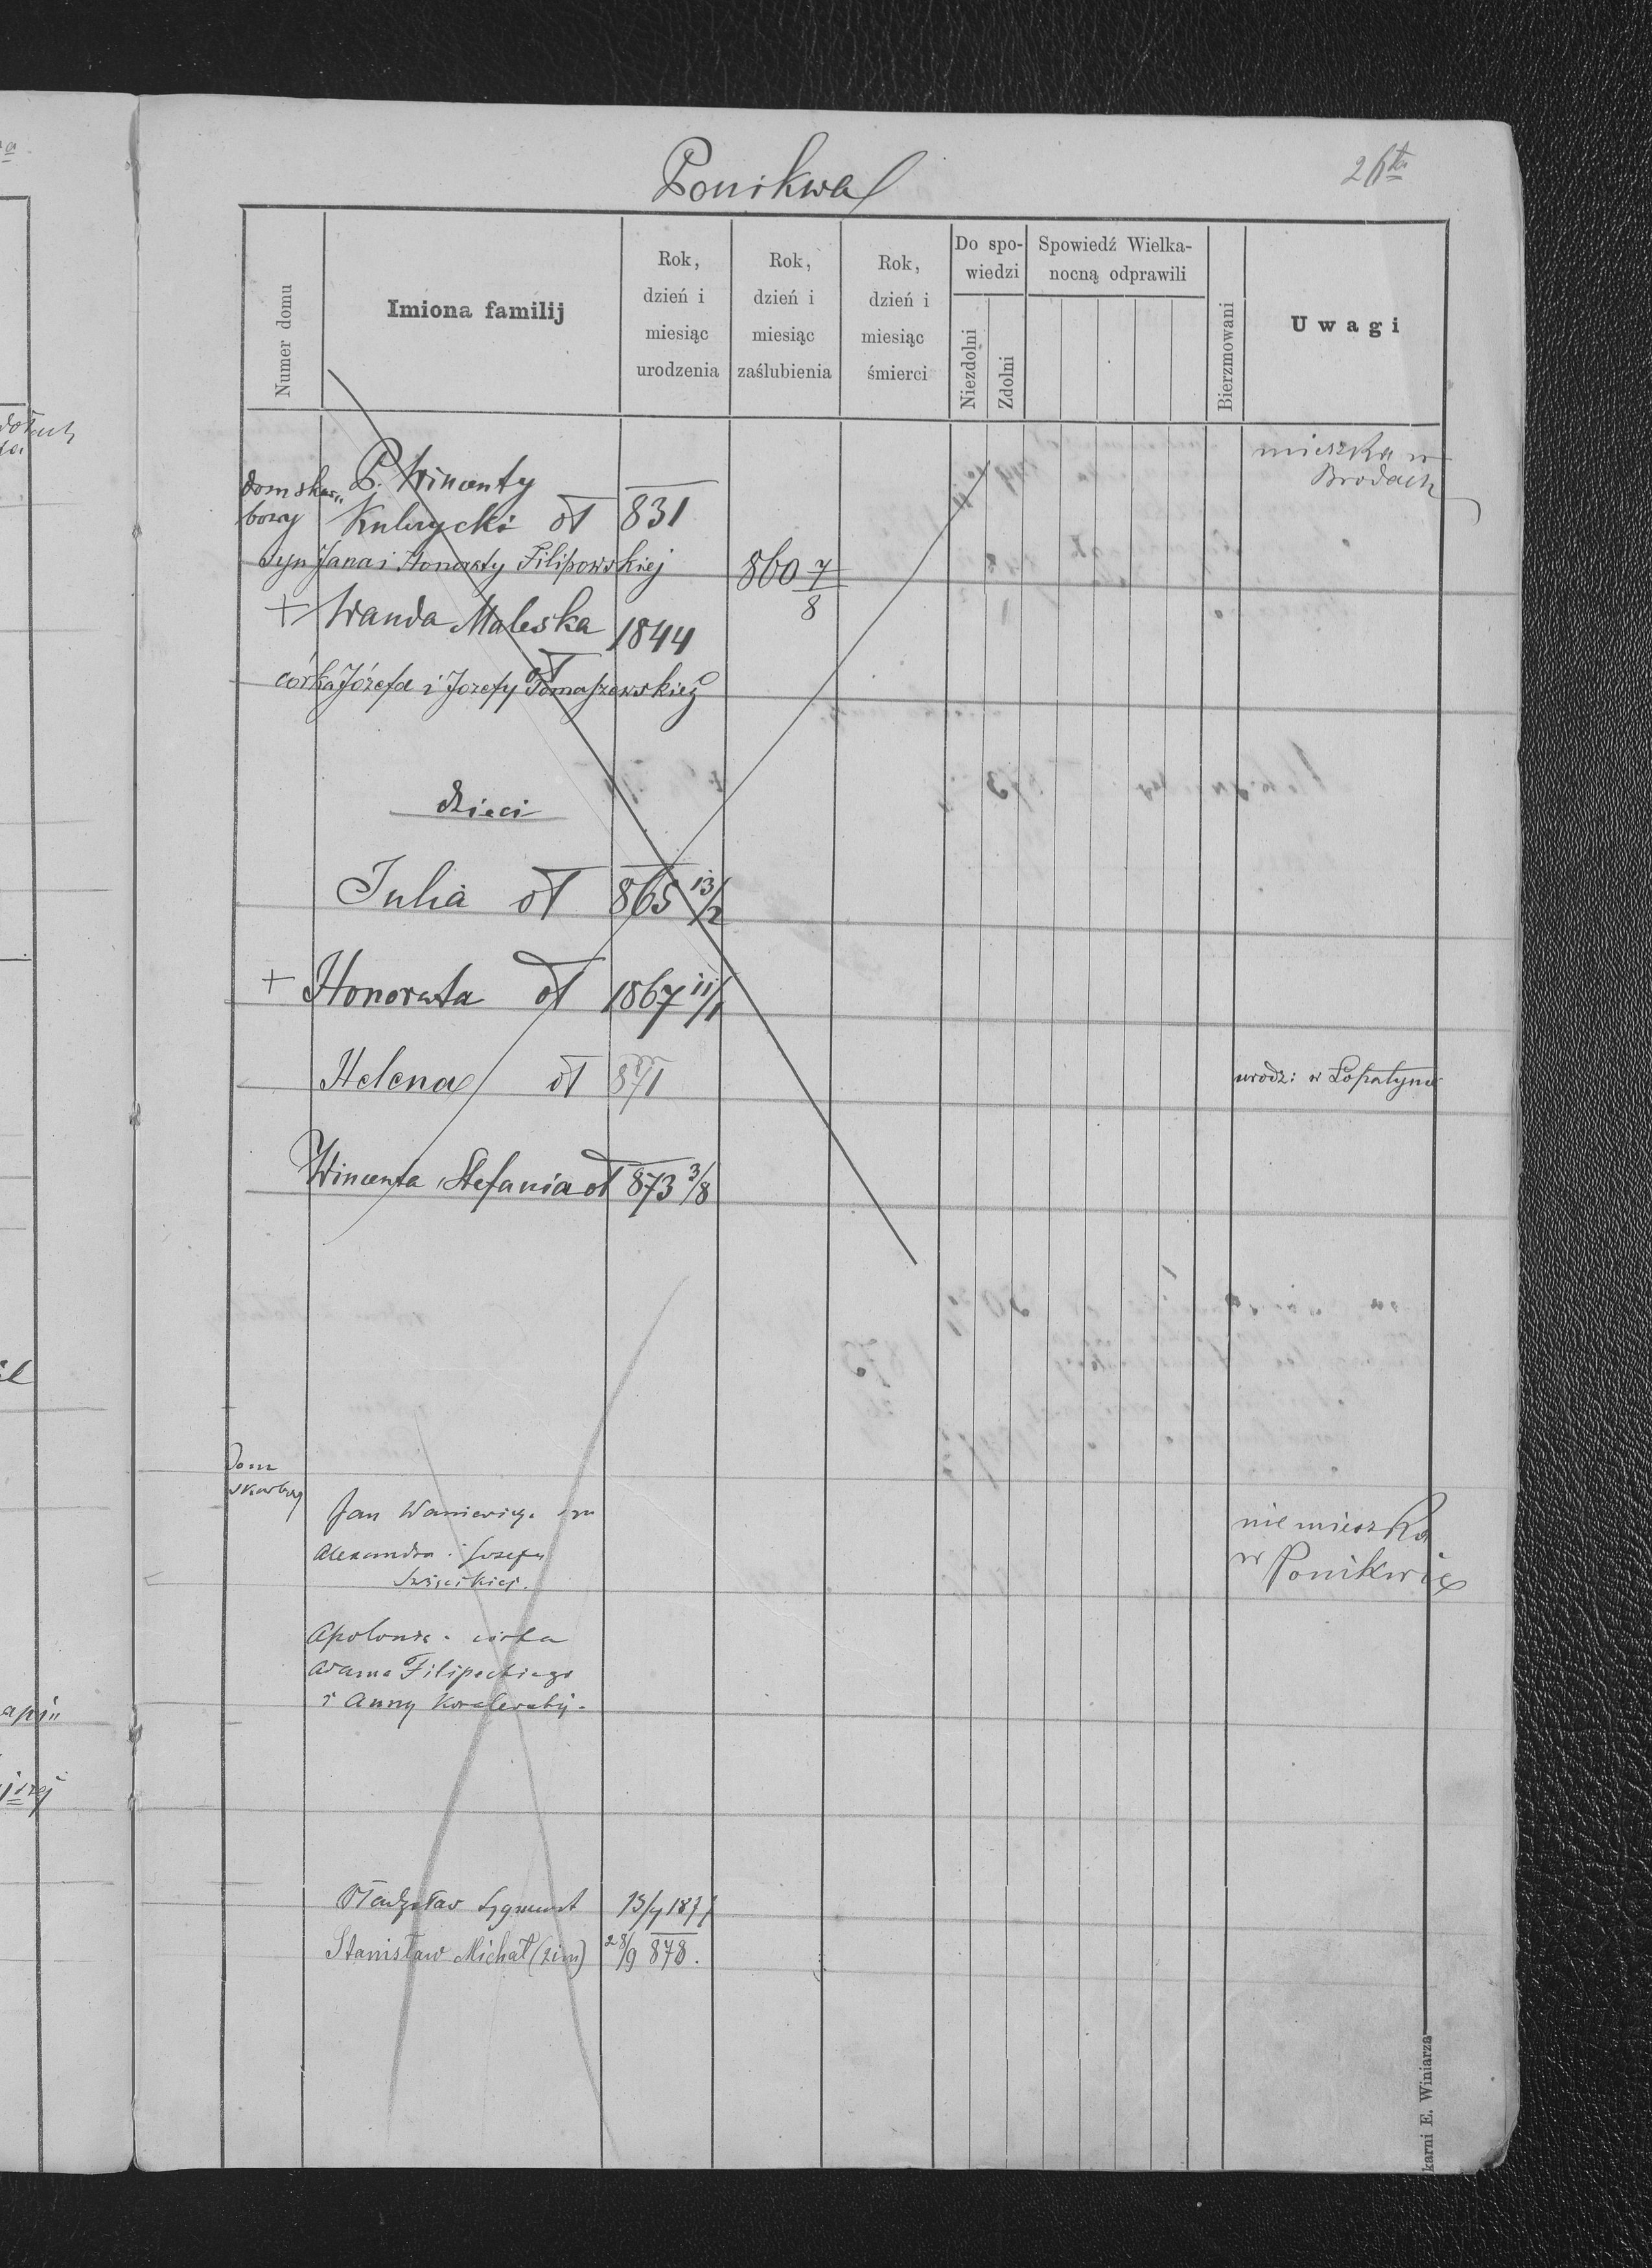 Ponikwa
26ta
Numer domu
Imiona familij
Rok, dzień i miesiąc urodzenia
Rok, dzień i miesiąc zaślubienia
Rok, dzień i miesiąc śmierci
Do spowiedzi
Niezdolni
Zdolni
Spowiedź Wielkanocną odprawili
Bierzmowani
Uwagi
dom skar„
bowy
P. Wincenty
mieszka w
Brodach
ot 831
syn Jana i Honoraty Filipowskiej
860 7/8
+ Wanda Maleska 1844
ot
córka Józefa i Jozefy Tomaszewskiej
dzieci
Julia ot 865 13/2
+ Honorata ot 1867 11/1
Helena ot 871 urodz: w Łopatynie
Wincenta Stefania ot 873 3/8
Dom
skarbowy
Jan Waniewicz syn
Alexandra i Józefy
nie mieszka
w Ponikwie
Apolonia córka
Adama Filipeckiego
i Anny
Władysław Zygmunt
Stanisław Michał (2 im) 28/9 878.
karni E. Winiarza